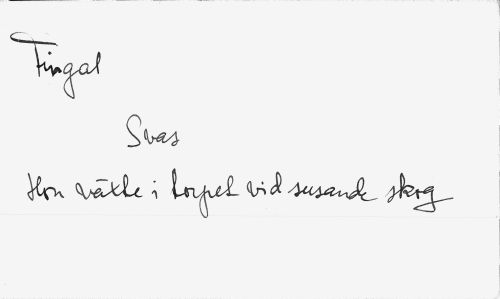 Fingal
Svas
Hon växte i torpet vid susande skog